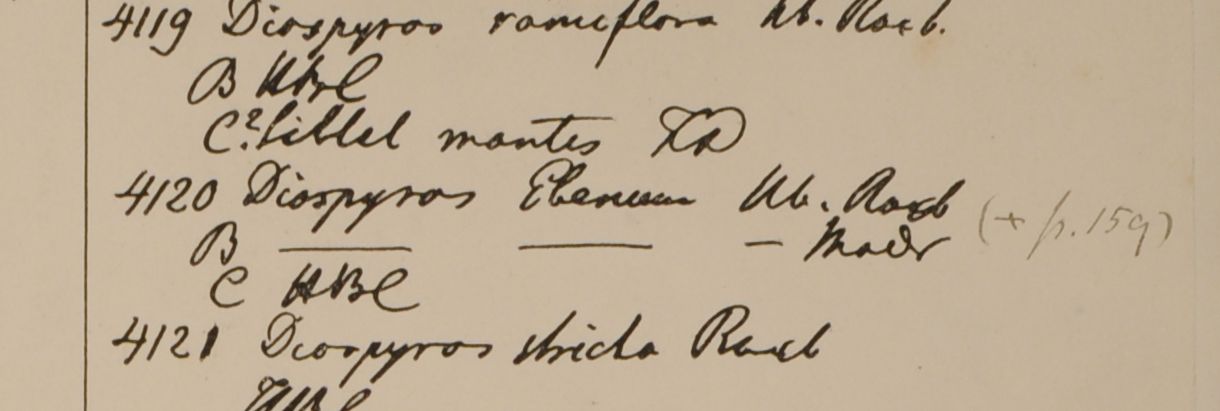 4119 Diospyros ramiflora Hb. Roxb.
B HBC
C? Sillet montes
4120 Diospyros Ebenum Hb. Roxb (+ p. 159)
B — — — Madr
C HBC
4121 Diospyros stricta Roxb
HBC